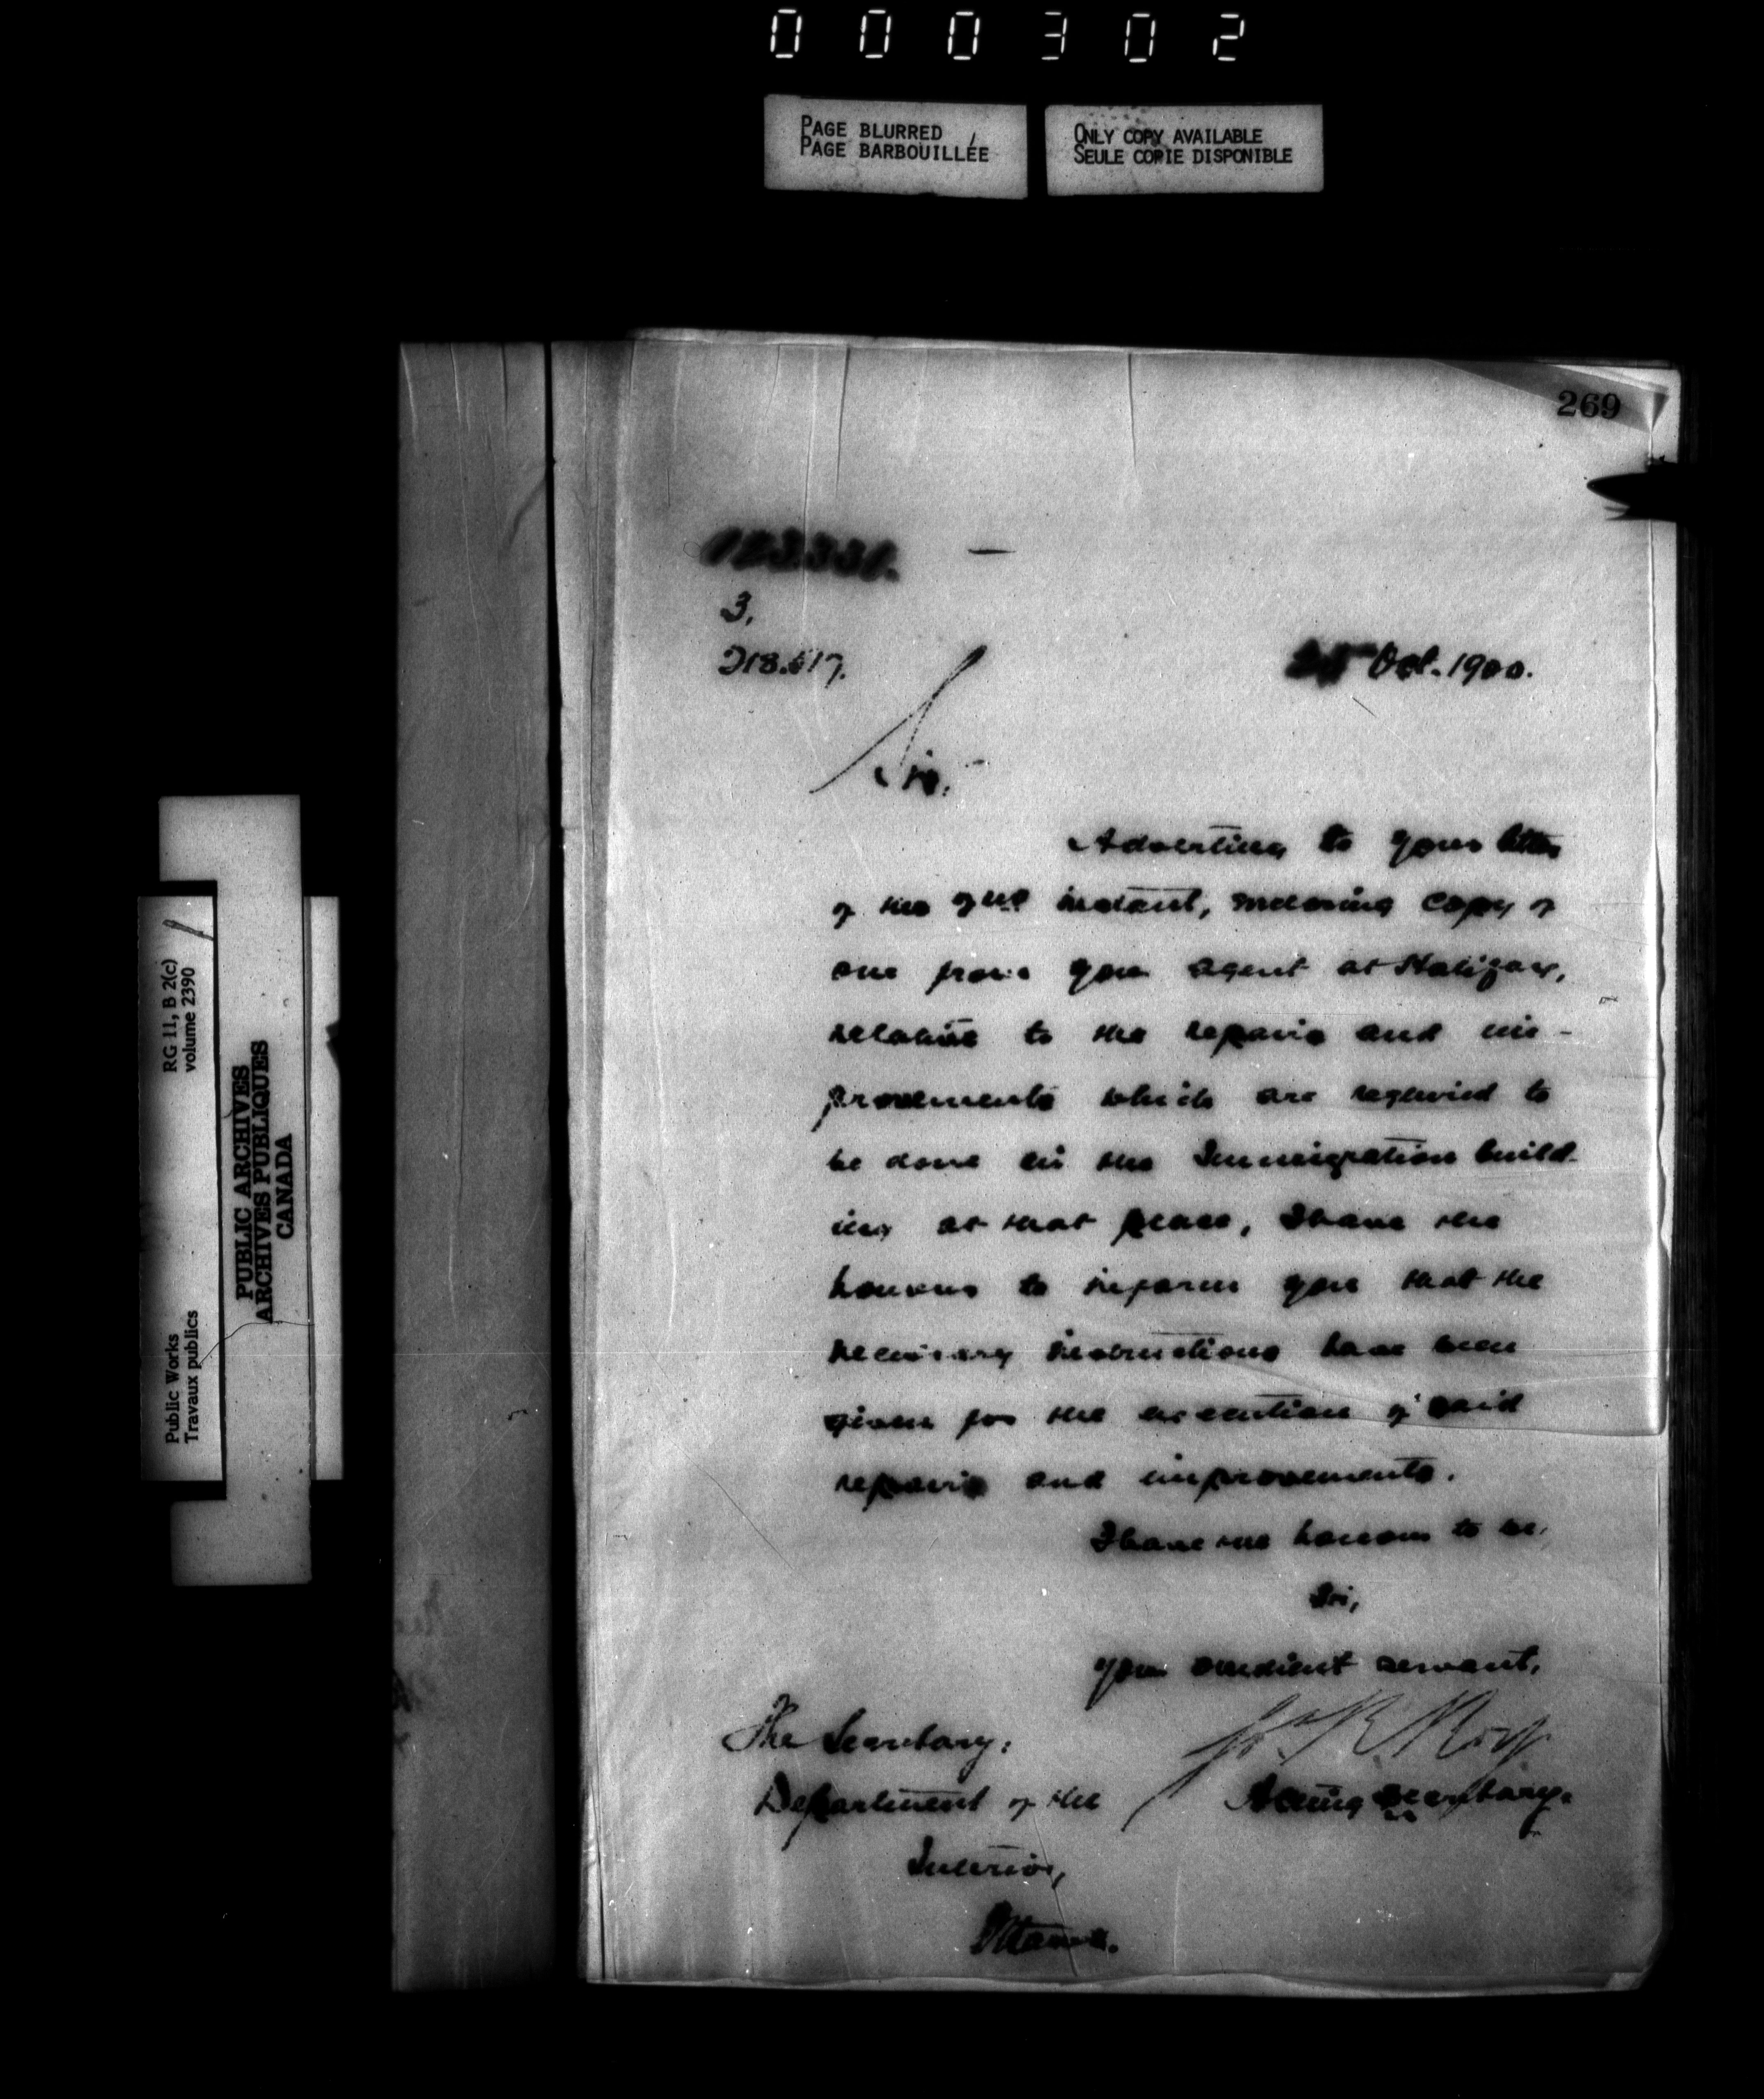 000302
PAGE BLURRED
PAGE BARBOUILLÉE
ONLY COPY AVAILABLE
SEULE COPIE DISPONIBLE
269
3.
218.517.
Oct. 1900.
Sir,
Adverting to your letter
of the instant, enclosing copy of
one from your agent at Halifax,
relative to the repairs and im-
provements which are required to
be done in the Immigration build-
ing at that place, I have the
honour to inform you that the
necessary instructions have been
given for the execution of said
repairs and improvements.
I have the honour to be,
Sir,
Your obedient servant,
Roy
Acting Secretary.
The Secretary,
Department of the
Interior,
Ottawa.
RG 11, B 2(c)
volume 2390
Public Works
Travaux publics
PUBLIC ARCHIVES
ARCHIVES PUBLIQUES
CANADA